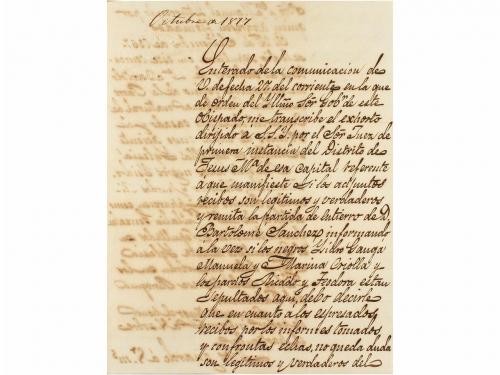 Octubre de 1877
Enterado de la comunicacion de
V. de fecha 27 del corriente en la que
de orden del Yllmo Sor Gobor de este
Obispado, me transcribe el exhorto
dirijido a S.S.Y. por el Sor Juez de
primera instancia del Distrito de
Jesus Ma. de esa Capital referente
a que manifieste si los adjuntos
recibos son legitimos y verdaderos
y remita la partida de entierro de D.
Bartolome Sanchez informando
á la vez si los negros Ysidro Ganga
Manuela y Marina Criolla y
los pardos Ricardo y Teodora estan
sepultados aqui, debo decirle
que en cuanto a los espresados
recibos por los informes tomados,
y confrontas echas, no queda duda
son legitimos y verdaderos del